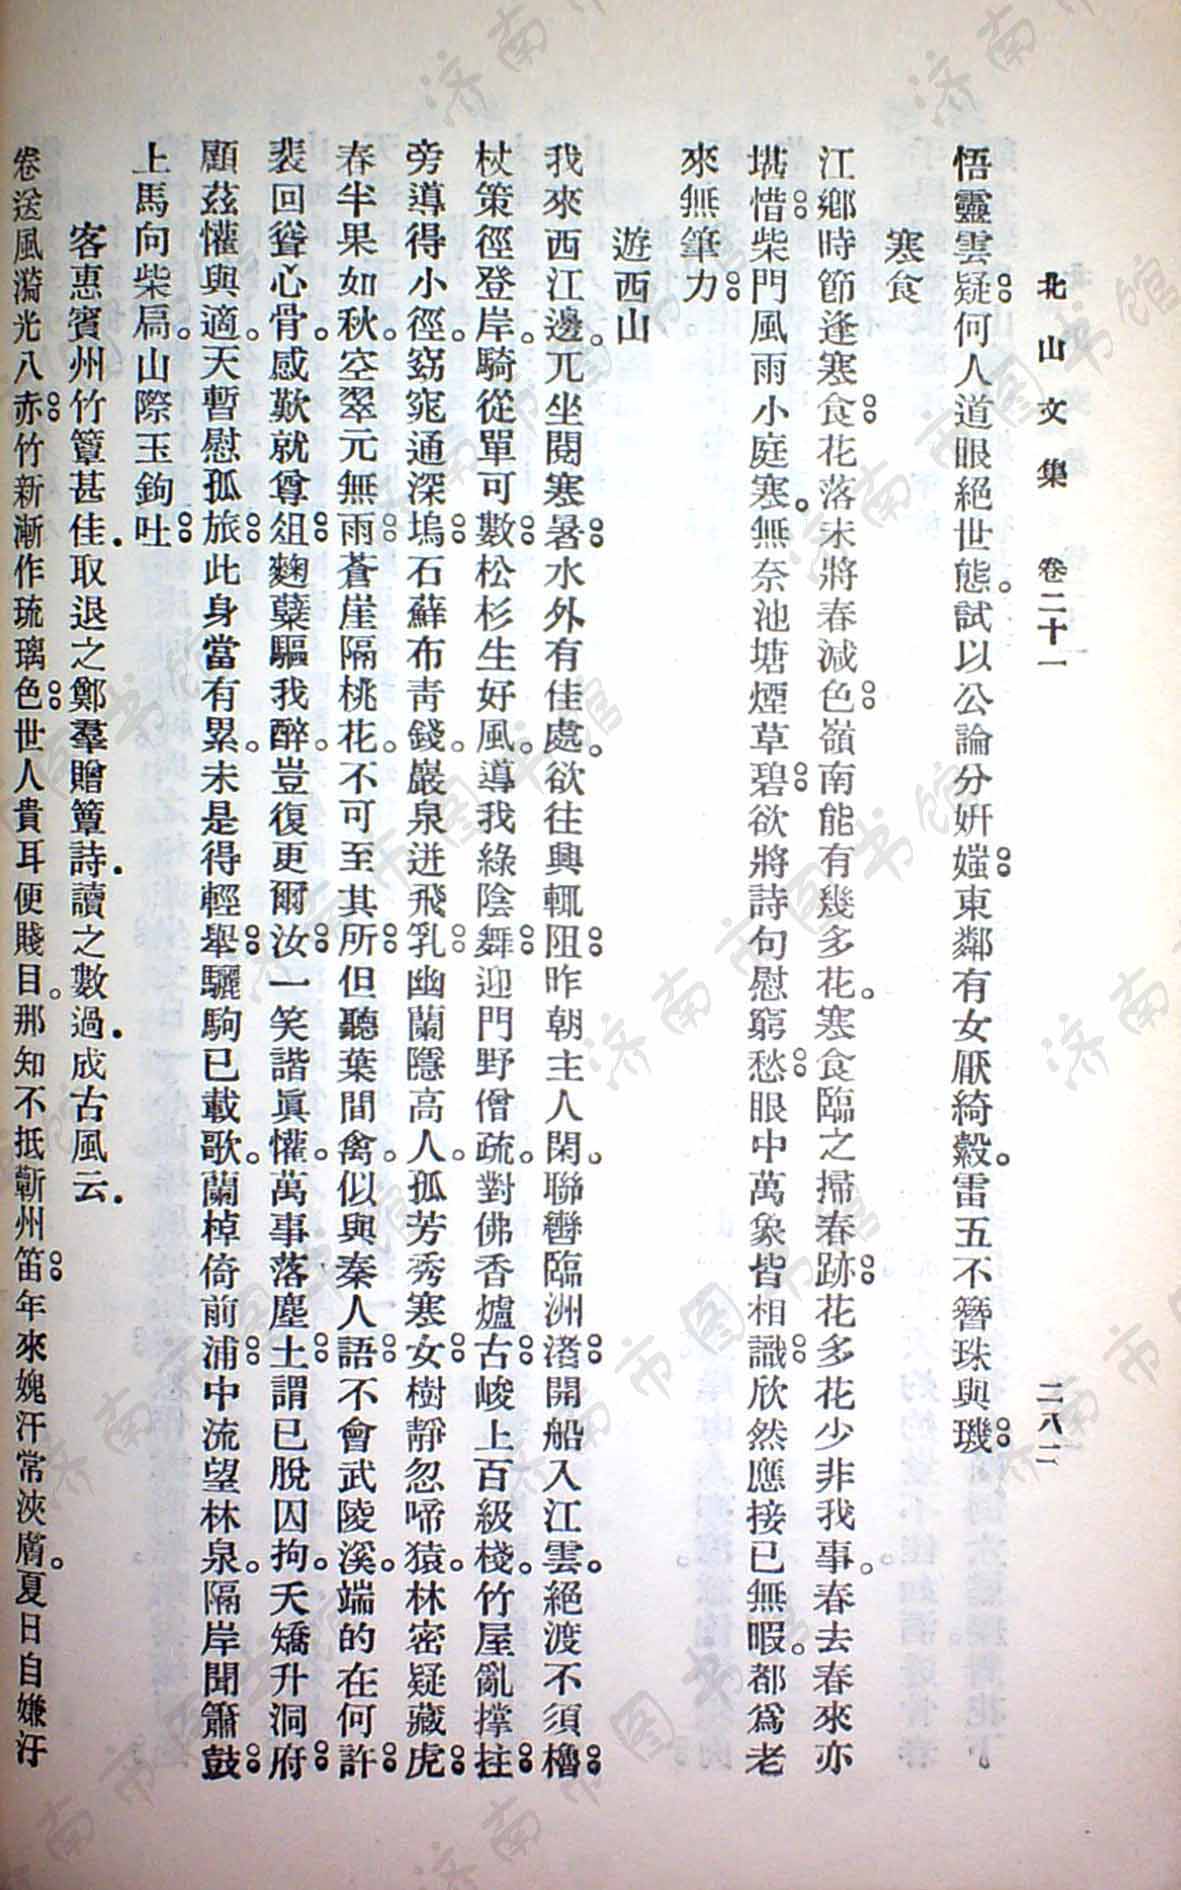 北山文集 卷二十一 二八二
悟靈雲疑何人道眼絕世態試以公論分妍媸東鄰有女厭綺縠雷五不簪珠與璣
寒食
江鄉時節逢寒食花落未將春減色嶺南能有幾多花寒食臨之掃春跡花多花少非我事春去春來亦
堪惜柴門風雨小庭寒無奈池塘煙草碧欲將詩句慰窮愁眼中萬象皆相識欣然應接已無暇都爲老
來無筆力
遊西山
我來西江邊兀坐閱寒暑水外有佳處欲往興輒阻昨朝主人閑聯轡臨洲渚開船入江雲絕渡不須櫓
杖策徑登岸騎從單可數松杉生好風導我綠陰舞迎門野僧疏對佛香爐古峻上百級棧竹屋亂撐拄
旁導得小徑窈窕通深塢石蘚布青錢巖泉迸飛乳幽蘭隱高人孤芳秀寒女樹靜忽啼猿林密疑藏虎
春半果如秋空翠元無雨蒼崖隔桃花不可至其所但聽葉間禽似與秦人語不會武陵溪端的在何許
裴回聳心骨感歎就尊俎麴蘖驅我醉豈復更爾汝一笑諧眞懽萬事落塵土謂已脫囚拘夭矯升洞府
顧茲懽與適天暫慰孤旅此身當有累未是得輕舉驪駒已載歌蘭棹倚前浦中流望林泉隔岸聞簫鼓
上馬向柴扃山際玉鉤吐
客惠賓州竹簟甚佳取退之鄭羣贈簟詩讀之數過成古風云
卷送風漪光八赤竹新漸作琉璃色世人貴耳便賤目那知不抵蘄州笛年來媿汗常浹膚夏日自嫌汙
济南市图书馆